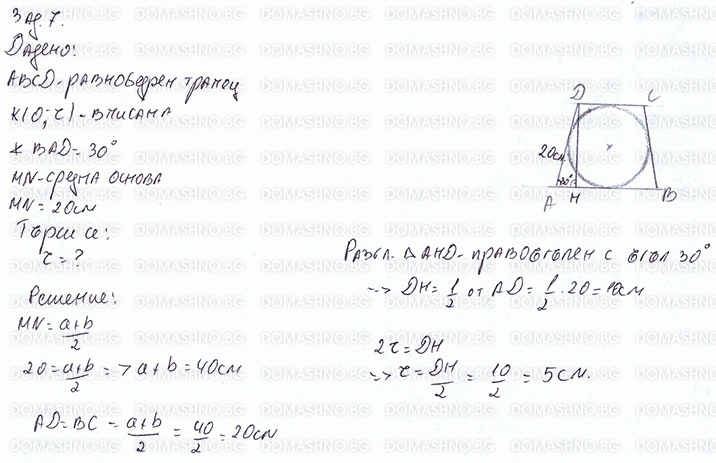 Зад. 7.
Дадено:
ABCD - равнобедрен трапец
K(O; r) - вписана
∢ BAD = 30°
MN - средна основа
MN = 20 см
Търси се:
r = ?
Решение:
MN = a+b/2
20 = a+b/2 => a+b = 40 см
AD = BC = a+b/2 = 40/2 = 20 см
D C
20 см.
30°
A H B
Разгл. △ AHD - правоъгълен с ъгъл 30°
=> DH = 1/2 от AD = 1/2 . 20 = 10 см
2r = DH
=> r = DH/2 = 10/2 = 5 см.
DOMASHNO.BG